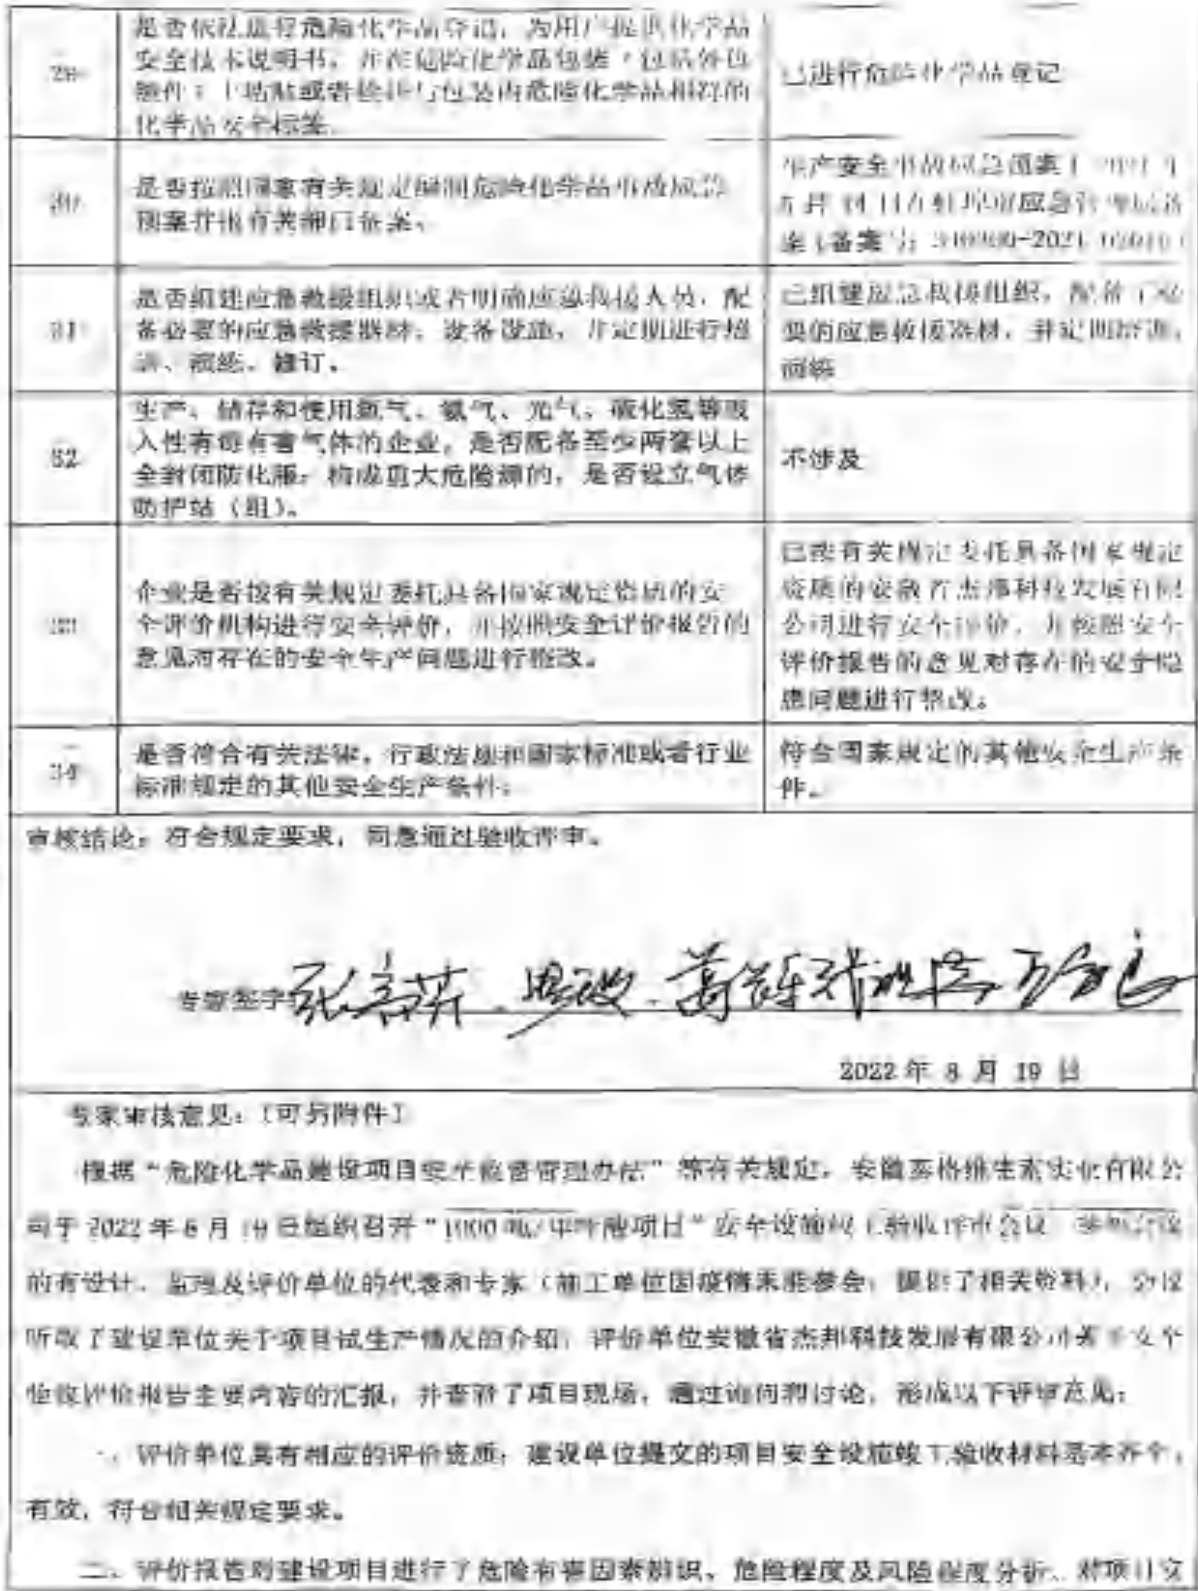 29
是否依法进行危险化学品登记，为用户提供化学品
安全技术说明书，并在危险化学品包装（包括外包
装件）上粘贴或者拴挂与包装内危险化学品相符的
化学品安全标签。
已进行危险化学品登记
30
是否按照国家有关规定编制危险化学品事故应急
预案并报有关部门备案。
生产安全事故应急预案于 2021 年
应急管理局备
案（备案号：
31
是否组建应急救援组织或者明确应急救援人员，配
备必要的应急救援器材、设备设施，并定期进行培
训、演练、修订。
已组建应急救援组织，配备了必
要的应急救援器材，并定期培训、
演练
32
生产、储存和使用氯气、氨气、光气、硫化氢等吸
入性有毒有害气体的企业，是否配备至少两套以上
全封闭防化服；构成重大危险源的，是否设立气体
防护站（组）。
不涉及
33
企业是否按有关规定委托具备国家规定资质的安
全评价机构进行安全评价，并按照安全评价报告的
意见对存在的安全生产问题进行整改。
已按有关规定委托具备国家规定
资质的安徽省杰邦科技发展有限
公司进行安全评价，并按照安全
评价报告的意见对存在的安全隐
患问题进行整改。
34
是否符合有关法律、行政法规和国家标准或者行业
标准规定的其他安全生产条件。
符合国家规定的其他安全生产条
件。
审核结论：符合规定要求，同意通过验收评审。
专家签字
2022 年 8 月 19 日
专家审核意见：〔可另附件〕
根据“危险化学品建设项目安全监督管理办法”等有关规定，安徽泰格维生素实业有限公
司于 2022 年 8 月 19 日组织召开“1000 吨/年叶酸项目”安全设施竣工验收评审会议，参加会议
的有设计、监理及评价单位的代表和专家（施工单位因疫情未能参会，提供了相关资料），会议
听取了建设单位关于项目试生产情况的介绍，评价单位安徽省杰邦科技发展有限公司关于安全
验收评价报告主要内容的汇报，并查看了项目现场，通过询问和讨论，形成以下评审意见：
一、评价单位具有相应的评价资质；建设单位提交的项目安全设施竣工验收材料基本齐全，
有效，符合相关规定要求。
二、评价报告对建设项目进行了危险有害因素辨识、危险程度及风险程度分析，对项目安